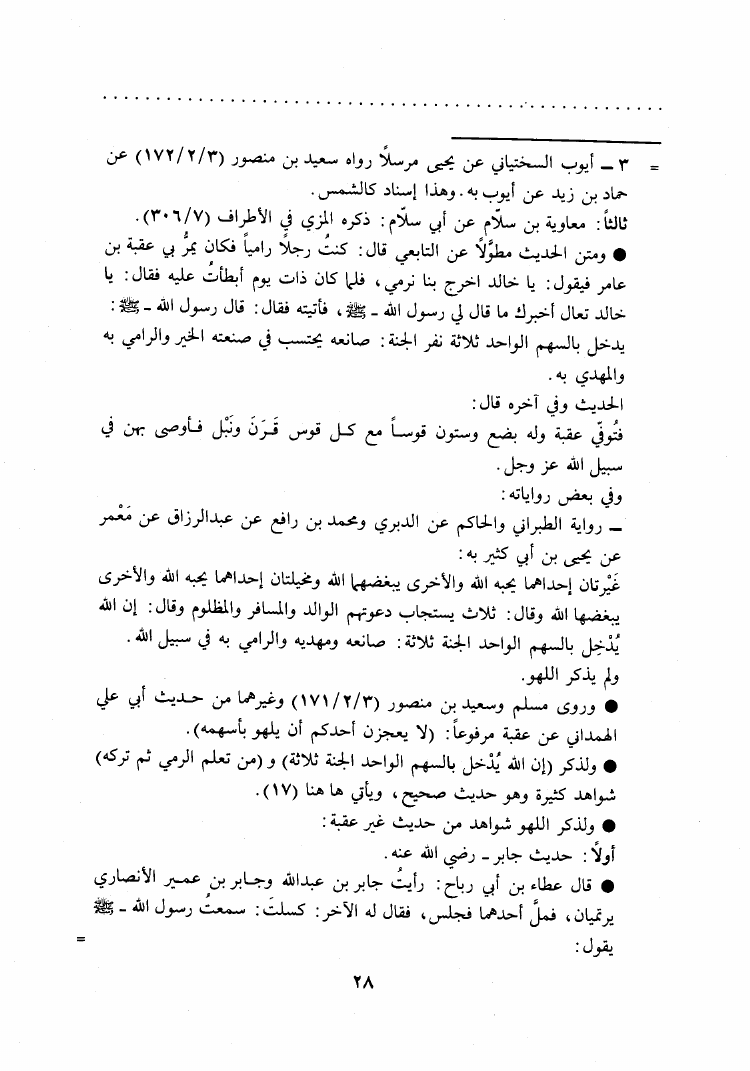 = ٣ ــ أيوب السختياني عن يحيى مرسلاً رواه سعيد بن منصور (١٧٢/٢/٣) عن
حماد بن زيد عن أيوب به. وهذا إسناد كالشمس.
ثالثاً: معاوية بن سلّام عن أبي سلّام: ذكره المزي في الأطراف (٣٠٦/٧).
● ومتن الحديث مطوَّلًا عن التابعي قال: كنتُ رجلًا رامياً فكان يمرُّ بي عقبة بن
عامر فيقول: يا خالد اخرج بنا نرمي، فلما كان ذات يوم أبطأتُ عليه فقال: يا
خالد تعال أخبرك ما قال لي رسول الله ــ ﷺ، فأتيته فقال: قال رسول الله ــ ﷺ:
يدخل بالسهم الواحد ثلاثة نفر الجنة: صانعه يحتسب في صنعته الخير والرامي به
والمهدي به.
الحديث وفي آخره قال:
فتُوفّي عقبة وله بضع وستون قوساً مع كل قوس قَرَنَ ونَبْل فأوصى بهن في
سبيل الله عز وجل.
وفي بعض رواياته:
ــ رواية الطبراني والحاكم عن الدبري ومحمد بن رافع عن عبدالرزاق عن مَعْمر
عن يحيى بن أبي كثير به:
غَيْرتان إحداهما يحبه الله والأخرى يبغضها الله ومخيلتان إحداهما يحبه الله والأخرى
يبغضها الله وقال: ثلاث يستجاب دعوتهم الوالد والمسافر والمظلوم وقال: إن الله
يُدْخِل بالسهم الواحد الجنة ثلاثة: صانعه ومهديه والرامي به في سبيل الله.
ولم يذكر اللهو.
● وروى مسلم وسعيد بن منصور (١٧١/٢/٣) وغيرهما من حديث أبي علي
الهمداني عن عقبة مرفوعاً: (لا يعجزن أحدكم أن يلهو بأسهمه).
● ولذكر (إن الله يُدْخل بالسهم الواحد الجنة ثلاثة) و (من تعلم الرمي ثم تركه)
شواهد كثيرة وهو حديث صحيح، ويأتي ها هنا (١٧).
● ولذكر اللهو شواهد من حديث غير عقبة:
أولًا: حديث جابر ــ رضي الله عنه.
● قال عطاء بن أبي رباح: رأيتُ جابر بن عبدالله وجابر بن عمير الأنصاري
يرتميان، فملَّ أحدهما فجلس، فقال له الآخر: كسلتَ: سمعتُ رسول الله ــ ﷺ
يقول: =
٢٨